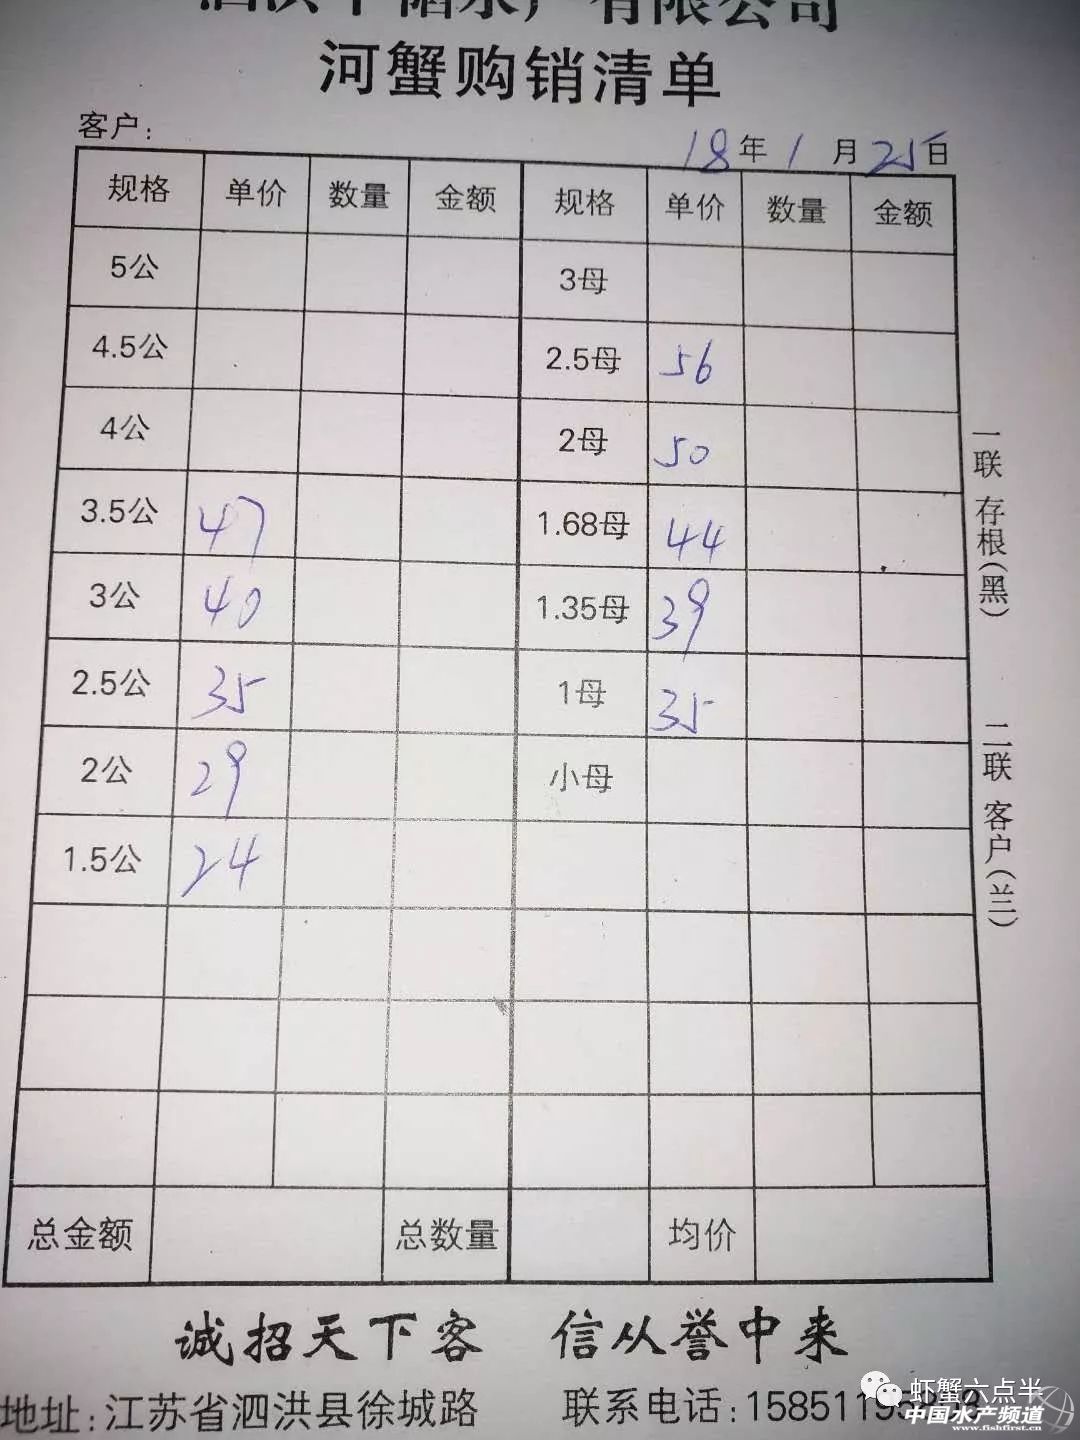 有限公司
河蟹购销清单
客户：
18年1月25日
规格 单价 数量 金额 规格 单价 数量 金额
5公 3母
4.5公 2.5母 56
4公 2母 50
3.5公 47 1.68母 44
3公 40 1.35母 39
2.5公 35 1母 35
2公 29 小母
1.5公 24
总金额 总数量 均价
一联 存根(黑)
二联 客户(兰)
诚招天下客 信从誉中来
地址:江苏省泗洪县徐城路 联系电话:158511
虾蟹六点半
中国水产频道
www.fishfirst.cn